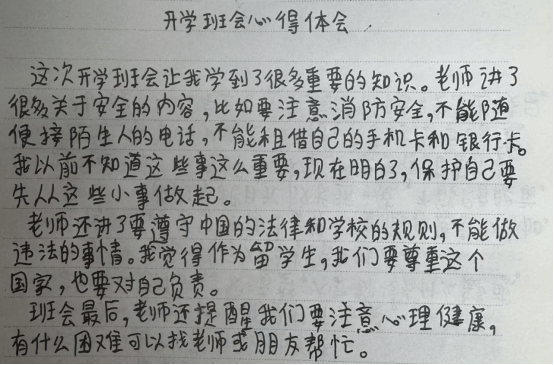 开学班会心得体会
这次开学班会让我学到了很多重要的知识。老师讲了
很多关于安全的内容,比如要注意消防安全,不能随
便接陌生人的电话,不能租借自己的手机卡和银行卡。
我以前不知道这些事这么重要,现在明白了,保护自己要
先从这些小事做起。
老师还讲了要遵守中国的法律和学校的规则,不能做
违法的事情。我觉得作为留学生,我们要尊重这个
国家,也要对自己负责。
班会最后,老师还提醒我们要注意心理健康,
有什么困难可以找老师或朋友帮忙。